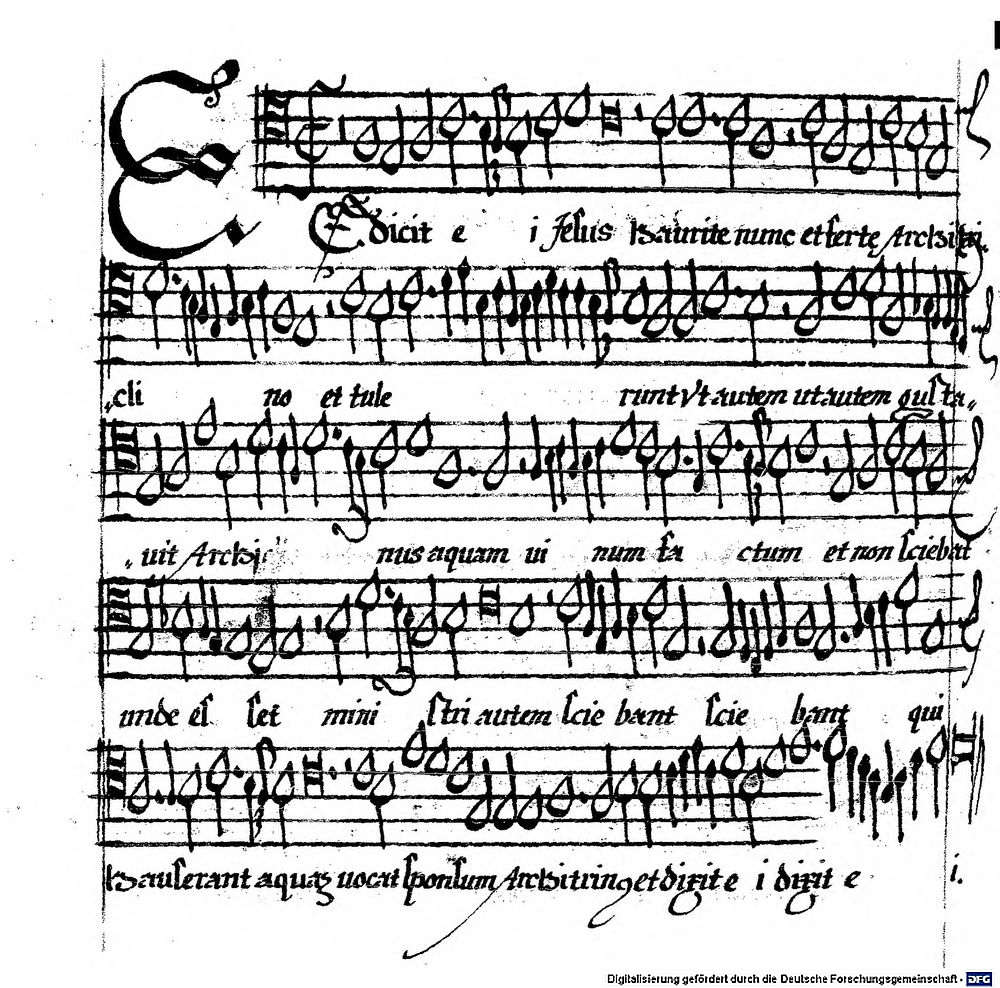 Et dicit e i Jesus Haurite nunc et ferte Archi tri,
,,cli no et tule runt Vt autem ut autem gusta,,
,,uit Archi nus aquam ui num fa ctum et non sciebat
unde es set mini stri autem scie bant scie bant qui
Hauserant aquaz uocat sponsum Architrin9 et dixit e i dixit e i.
Digitalisierung gefördert durch die Deutsche Forschungsgemeinschaft - DFG